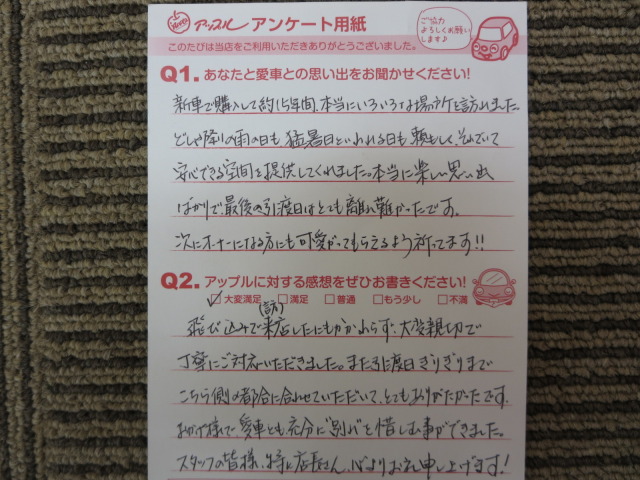 アップル アンケート用紙
ご協力
よろしくお願い
します♪
このたびは当店をご利用いただきありがとうございました。
Q1. あなたと愛車との思い出をお聞かせください!
新車で購入して約15年間、本当にいろいろな場所を訪れました。
どしゃ降りの雨の日も、猛暑日といわれる日も頼もしく、それでいて
安心できる空間を提供してくれました。本当に楽しい思い出
ばかりで最後の引渡日はとても離れ難かったです。
次にオーナーになる方にも可愛がってもらえるよう祈ってます!!
Q2. アップルに対する感想をぜひお書きください!
大変満足 満足 普通 もう少し 不満
(訪)
飛び込みで来店したにもかかわらず、大変親切で
丁寧にご対応いただきました。また引き渡日ぎりぎりまで
こちら側の都合に合わせていただいて、とてもありがたかったです。
おかげ様で愛車とも充分に"別れ"を惜しむ事ができました。
スタッフの皆様、特に店長さん、心よりお礼申し上げます!